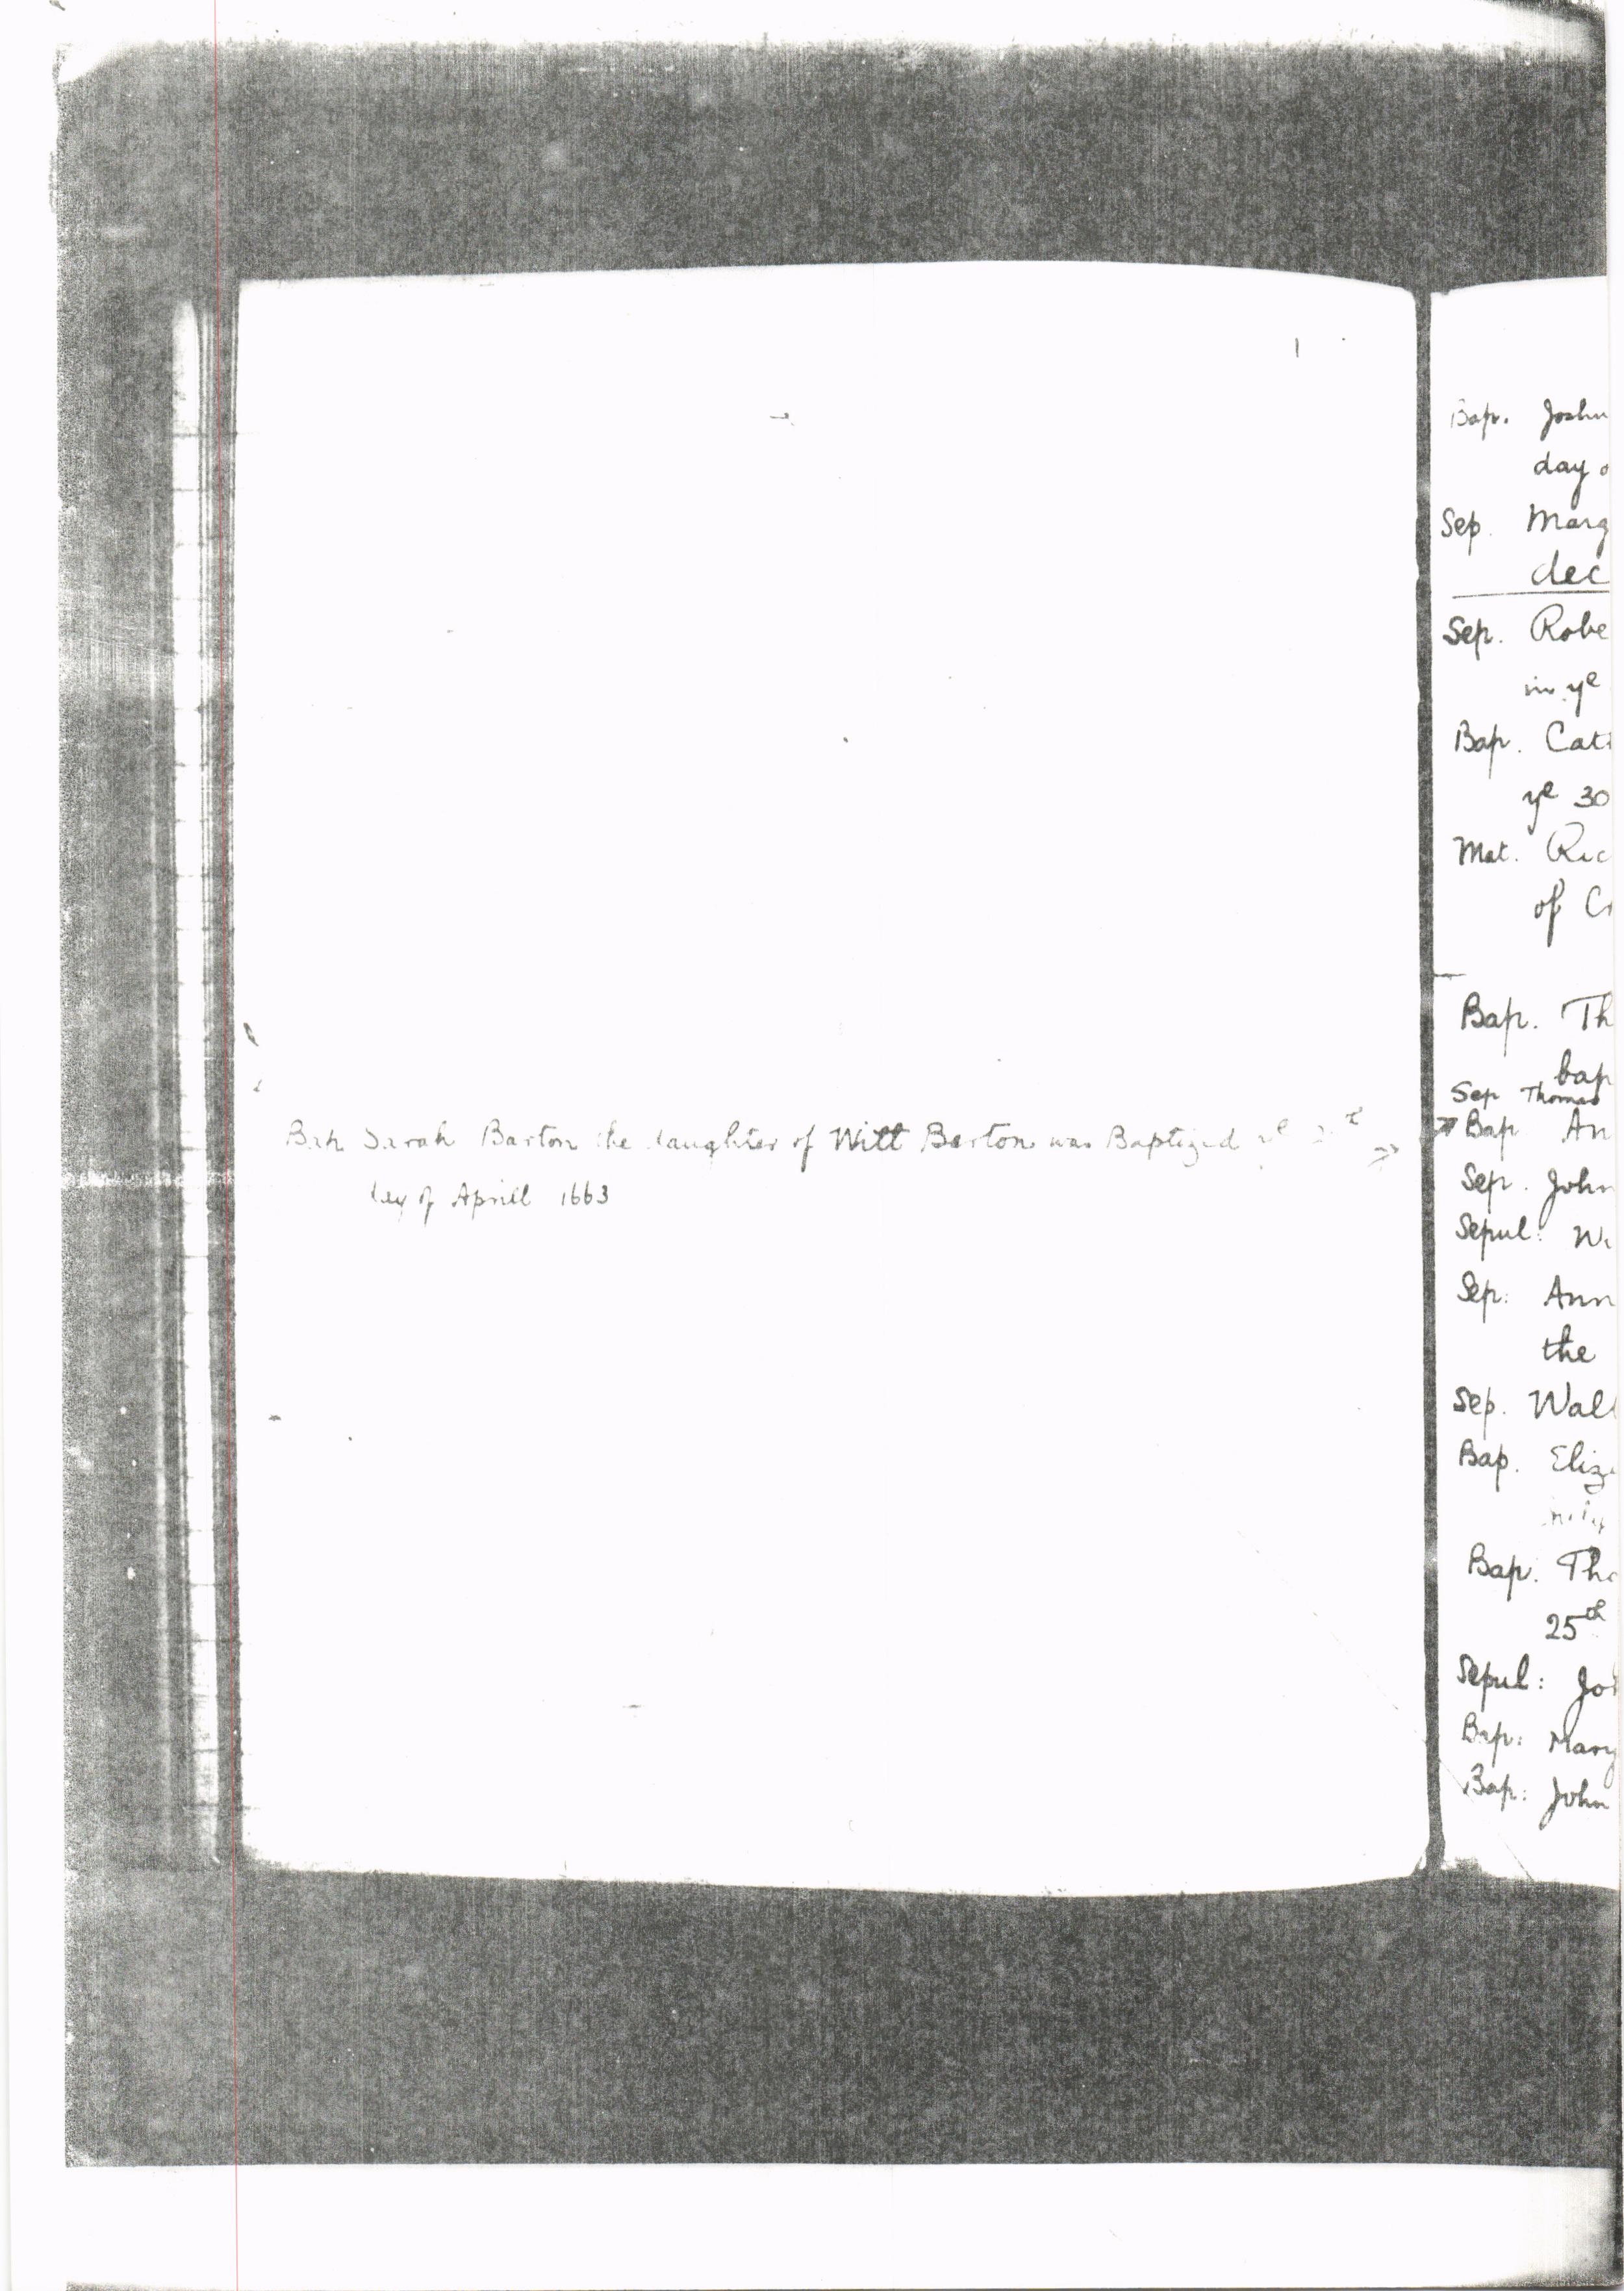 Bap. Sarah Barton the daughter of Witt Barton was Baptized ye
day of Aprill 1663
Bap. Joshu
day o
Sep. Marg
dec
Sep. Robe
in ye
Bap. Cat
ye 30
Mat. Ric
of C
Bap. Th
bap
Sep Thomas
Bap An
Sep. John
Sepul: Wi
Sep: Ann
the
Sep. Wal
Bap. Eliz
Bap. Tho
25th
Sepul: Jo
Bap: Mary
Bap: John